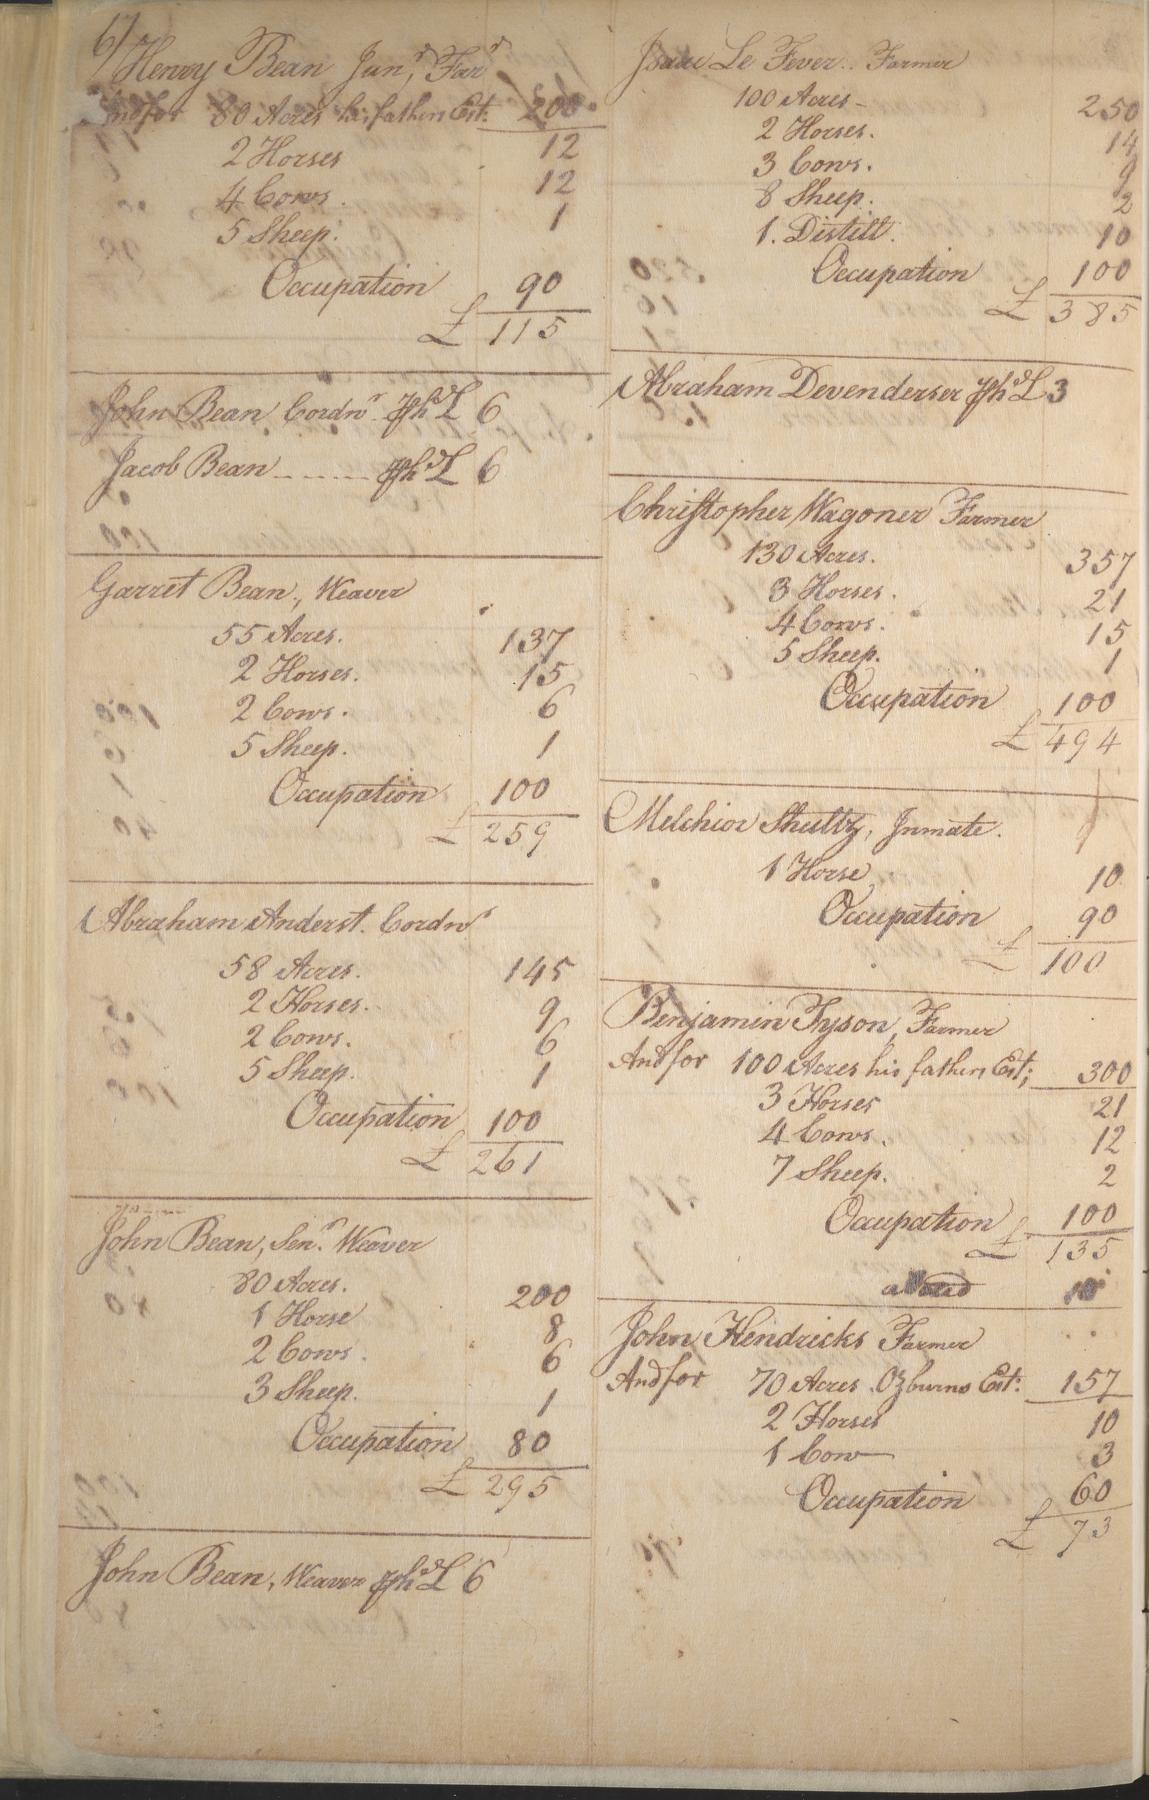 67
Henry Bean Junr, Farr
And for 80 Acres his fathers Est: 200
2 Horses 12
4 Cows. 12
5 Sheep. 1
Occupation 90
£ 115
John Bean Cordnr. £6
Jacob Bean £6
Garret Bean, Weaver
55 Acres. 137
2 Horses. 15
2 Cows. 6
5 Sheep. 1
Occupation 100
£ 259
Abraham Anderst. Cordnr
58 Acres. 145
2 Horses. 9
2 Cows. 6
5 Sheep. 1
Occupation 100
£ 261
John Bean, Senr. Weaver
80 Acres. 200
1 Horse 8
2 Cows. 6
3 Sheep. 1
Occupation 80
£ 295
John Bean, Weaver £6
Isaac Le Fever.. Farmer
100 Acres - 250
2 Horses. 14
3 Cows. 9
8 Sheep. 2
1. Distill. 10
Occupation 100
£ 385
Abraham Devenderser £3
Christopher Wagoner Farmer
130 Acres. 357
3 Horses. 21
4 Cows. 15
5 Sheep. 1
Occupation 100
£ 494
Melchior Shultz, Inmate.
1 Horse 10
Occupation 90
£ 100
Benjamin Tyson, Farmer
And for 100 Acres his fathers Est; 300
3 Horses 21
4 Cows. 12
7 Sheep. 2
Occupation 100
£ 135
10
John Hendricks Farmer
And for 70 Acres Ozburns Est: 157
2 Horses 10
1 Cow 3
Occupation 60
£ 73